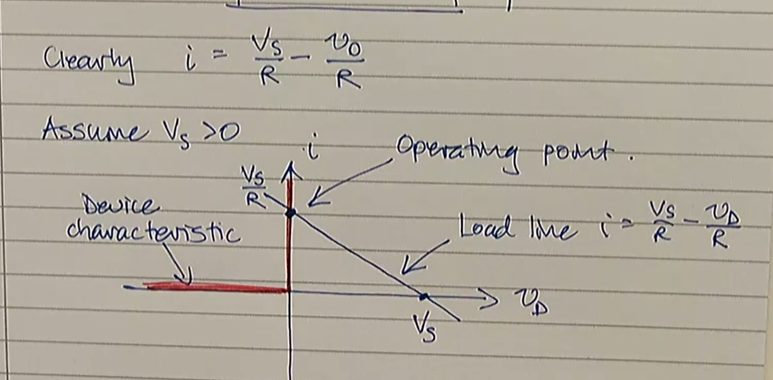 Clearly i = Vs/R - vD/R
Assume Vs >0
i
Operating point.
Vs/R
Device
characteristic
Load line i = Vs/R - vD/R
vD
Vs